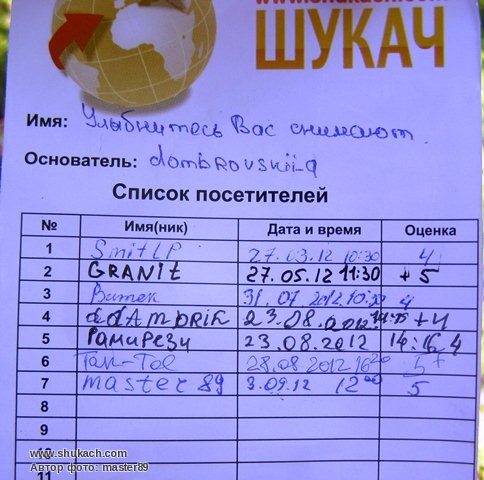 ШУКАЧ
Имя: Улыбнитесь Вас снимают.
Основатель: dombrovskii_a
Список посетителей
№ Имя(ник) Дата и время Оценка
1 SmitLP 27.03.12 10:30 4
2 GRANIt 27.05.12 11:30 +5
3 Витек 31.07.2012 4
4 23.08.2012 +4
5 Рамирези 23.08.2012 14:16 4
6 Tak-Tol 28,08 2012 16 20 5+
7 master 89 3.09.12 12 00 5
8
9
10
11
www.shukach.com
Автор фото: master89